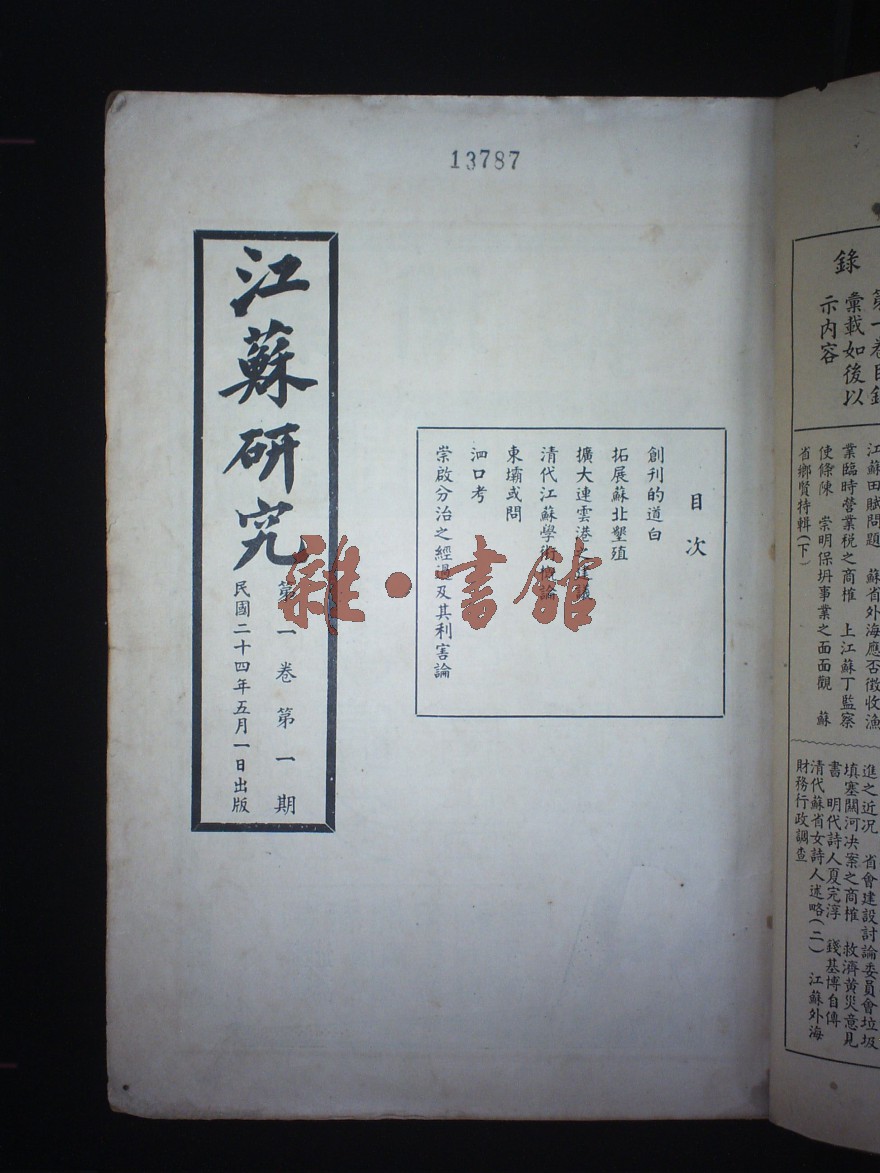 13787
江蘇研究
第一卷第一期
民國二十四年五月一日出版
目次
創刊的道白
拓展蘇北墾殖
擴大連雲港之建議
清代江蘇學術概論
東壩或問
泗口考
崇啟分治之經過及其利害論
雜·書館
錄
第一卷目錄
彙載如後以
示內容
江蘇田賦問題 蘇省外海應否徵收漁
業臨時營業稅之商榷 上江蘇丁監察
使條陳 崇明保坍事業之面面觀 蘇
省鄉賢特輯(下)
進之近況 省會建設討論委員會垃圾
填塞關河決案之商榷 救濟黃災意見
書 明代詩人夏完淳 錢基博自傳
清代蘇省女詩人述略(二) 江蘇外海
財務行政調查